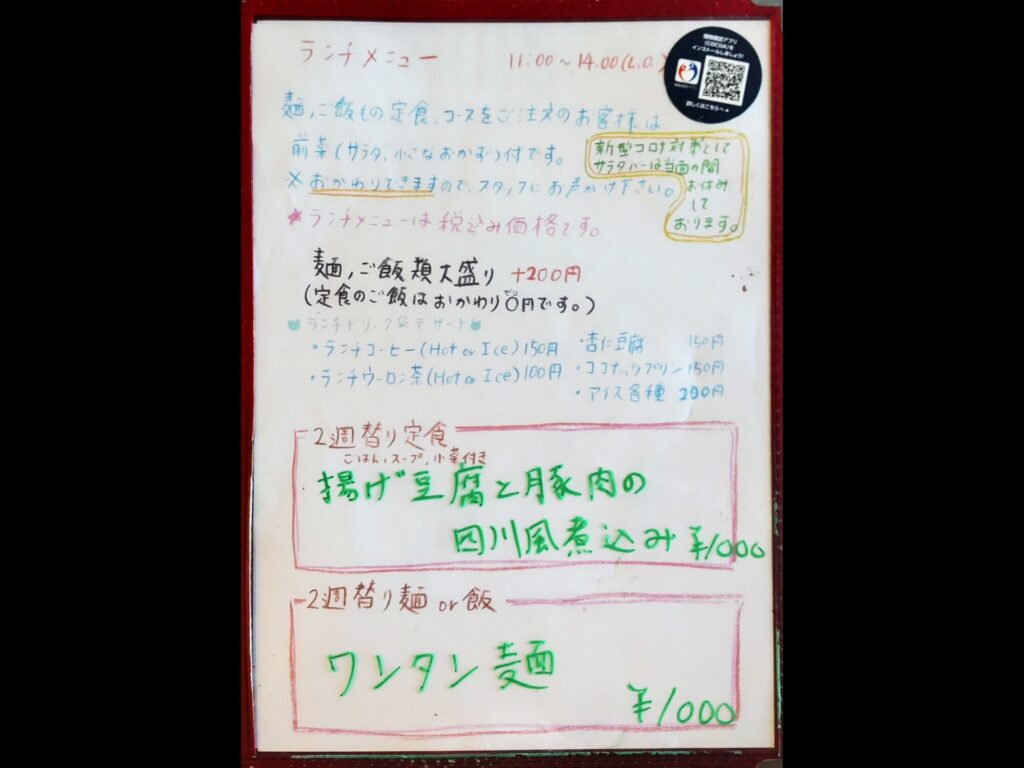 ランチメニュー 11:00～14:00(L.O.)
接触確認アプリ
(COCOA)を
インストールしましょう!
詳しくはこちらへ
麺,ご飯もの,定食,コースをご注文のお客様は
前菜(サラダ,小さなおかず)付です。
※おかわりできますので,スタッフにお声がけ下さい。
新型コロナ対策として
サラダバーは当面の間
お休み
して
おります。
★ランチメニューは税込み価格です。
麺,ご飯類大盛り +200円
(定食のご飯はおかわり0円です。)
ランチドリンク&デザート
・ランチコーヒー(Hot or Ice)150円
・ランチウーロン茶(Hot or Ice)100円
・杏仁豆腐 150円
・ココナッツプリン 150円
・アイス各種 200円
2週替り定食
ごはん,スープ,小菜付き
揚げ豆腐と豚肉の
四川風煮込み ¥1000
2週替り麺 or 飯
ワンタン麺
¥1000